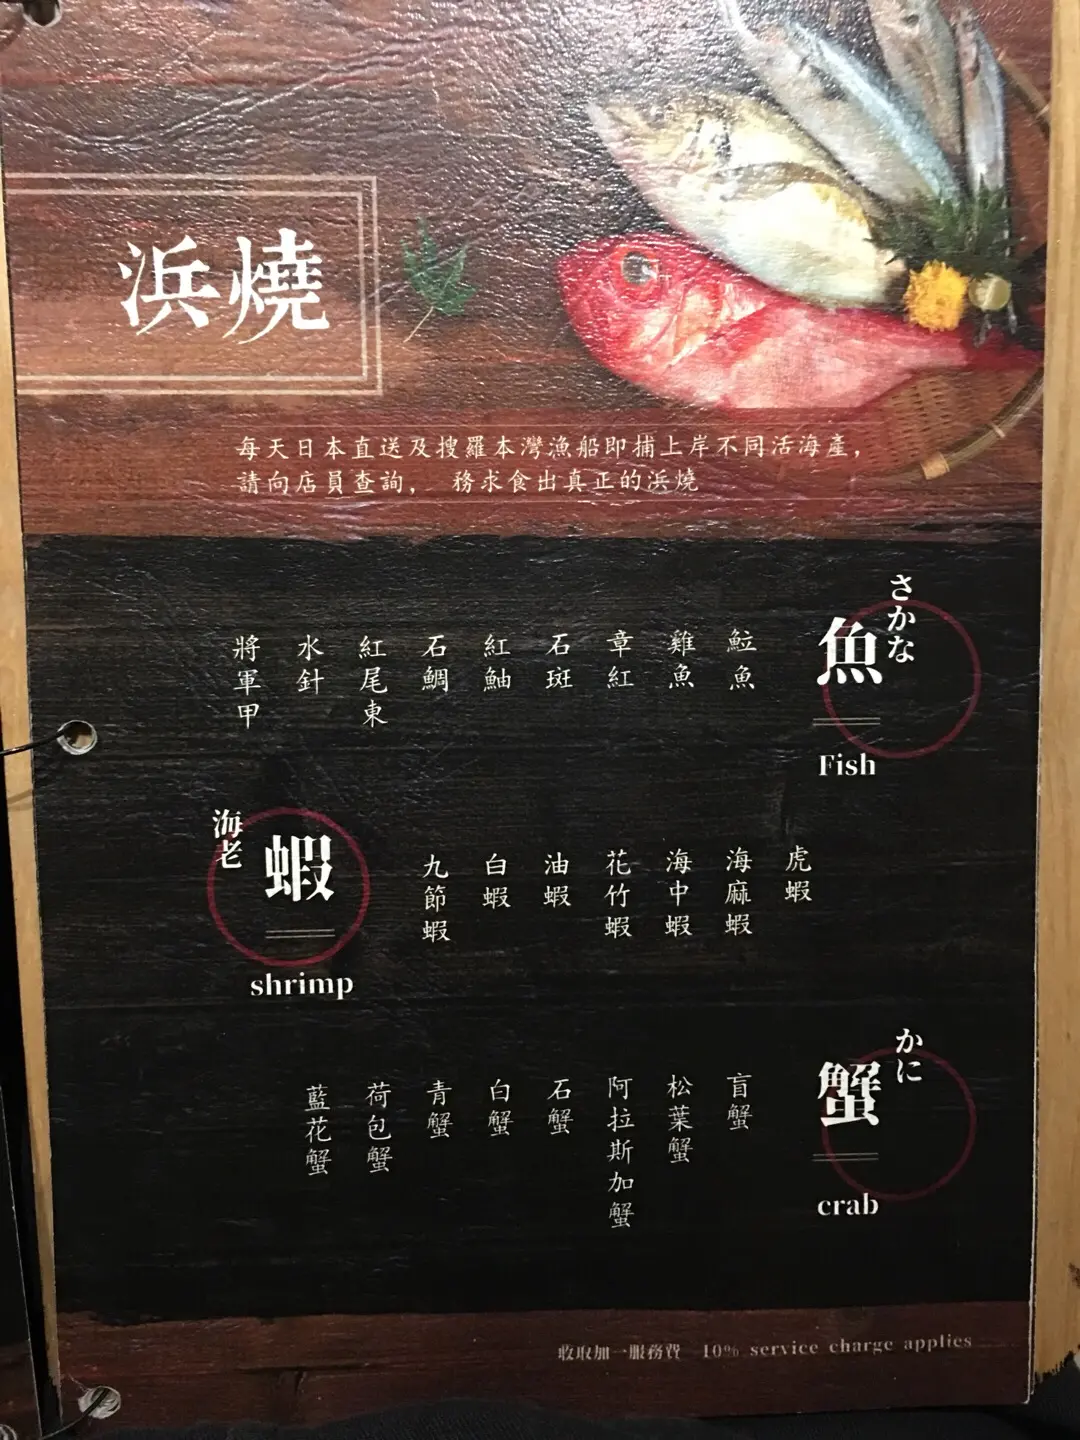 浜燒
每天日本直送及搜羅本灣漁船即捕上岸不同活海產，
請向店員查詢， 務求食出真正的浜燒
さかな
魚
Fish
鮏魚
雞魚
章紅
石斑
紅鮋
石鯛
紅尾東
水針
將軍甲
海老
蝦
shrimp
虎蝦
海麻蝦
海中蝦
花竹蝦
油蝦
白蝦
九節蝦
かに
蟹
crab
盲蟹
松葉蟹
阿拉斯加蟹
石蟹
白蟹
青蟹
荷包蟹
藍花蟹
收取加一服務費 10% service charge applies